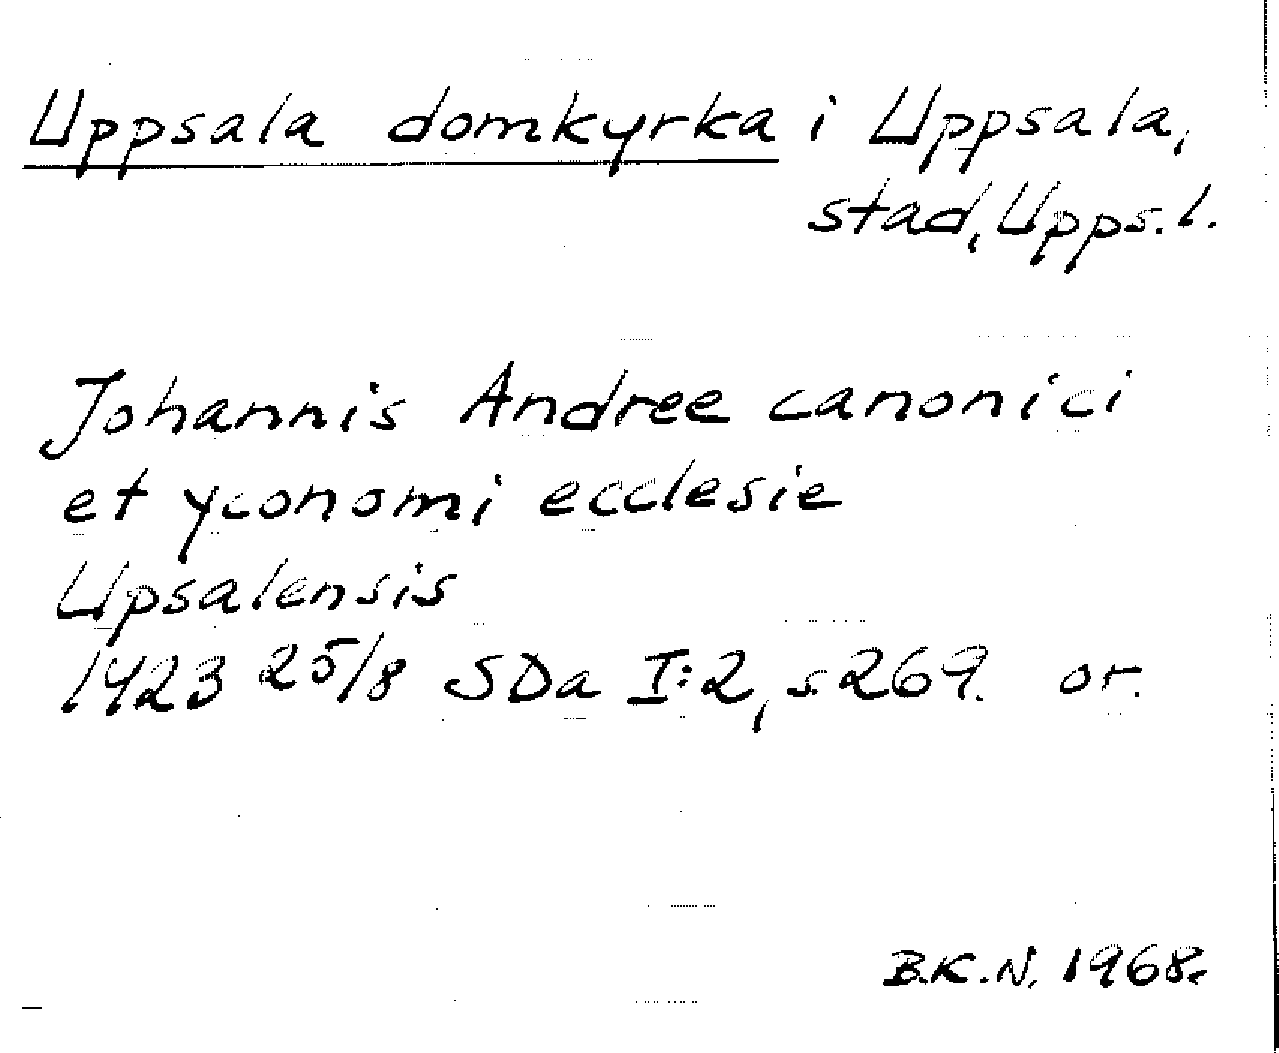 Uppsala domkyrka i Uppsala,
stad, Upps. l.
Johannis Andree canonici
et yconomi ecclesie
Upsalensis
1423 25/8 SDa I:2, s 269. or.
B.K.N. 1968.